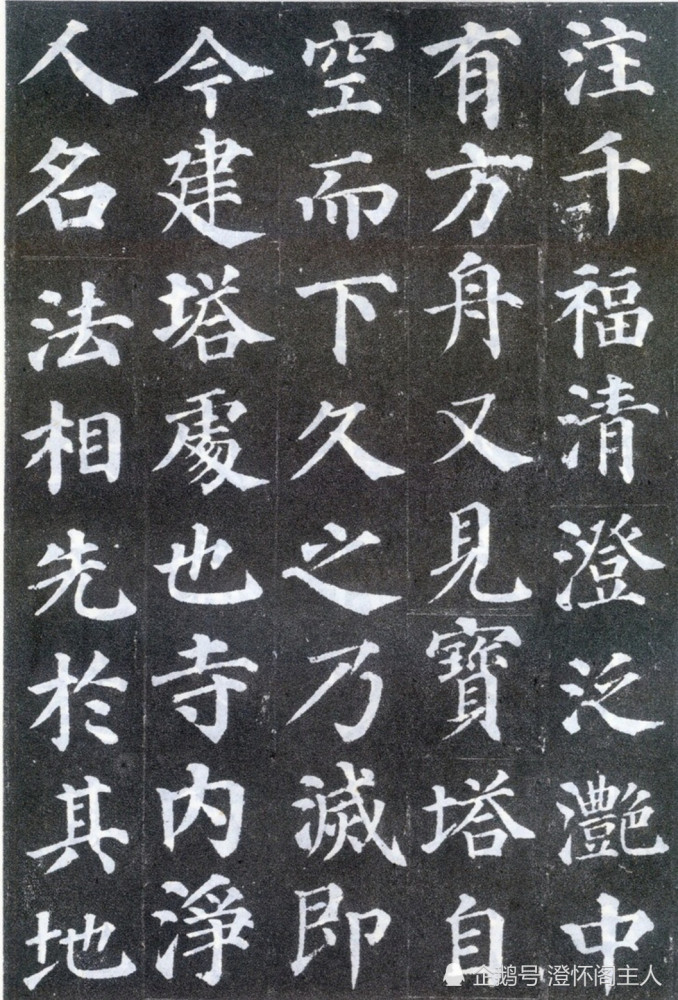 注千福清澄泛灔中
有方舟又見寳塔自
空而下久之乃滅即
今建塔處也寺内淨
人名法相先於其地
企鹅号 澄怀阁主人